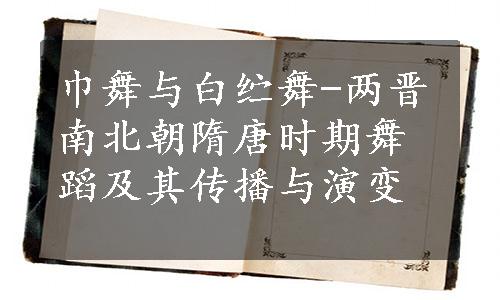 巾舞与白纻舞-两晋
南北朝隋唐时期舞
蹈及其传播与演变